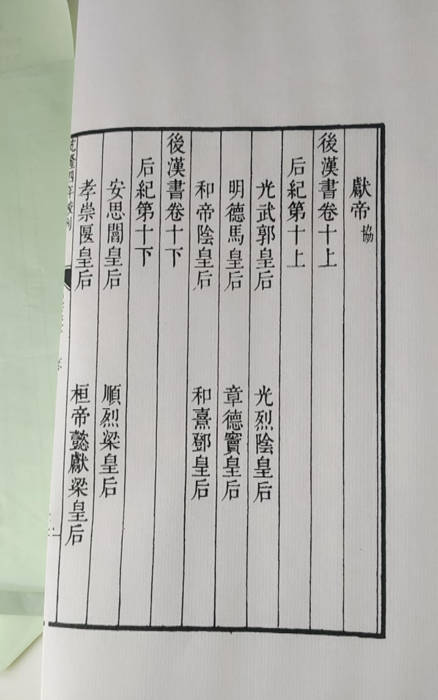 獻帝協
後漢書卷十上
后紀第十上
光武郭皇后 光烈陰皇后
明德馬皇后 章德竇皇后
和帝陰皇后 和熹鄧皇后
後漢書卷十下
后紀第十下
安思閻皇后 順烈梁皇后
孝崇匽皇后 桓帝懿獻梁皇后
乾隆四年校刊